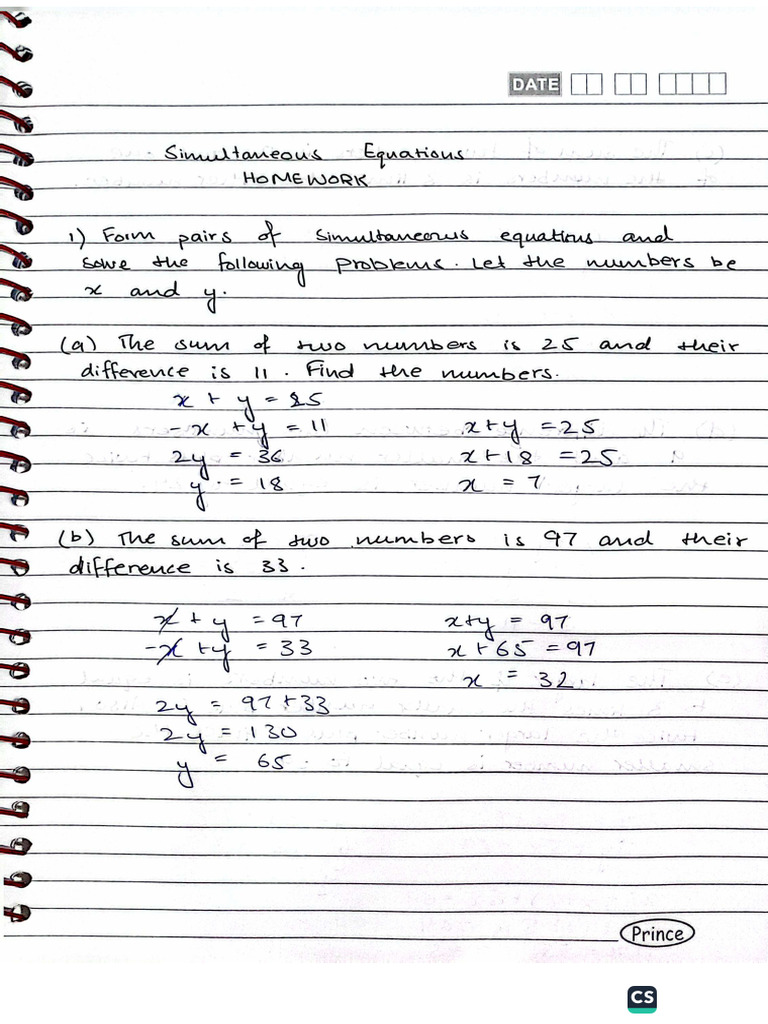 DATE
Simultaneous Equations
HOMEWORK
1) Form pairs of simultaneous equations and
solve the following problems. Let the numbers be
x and y.
(a) The sum of two numbers is 25 and their
difference is 11. Find the numbers.
x + y = 25
-x + y = 11 x+y = 25
2y = 36 x+18 = 25
y = 18 x = 7
(b) The sum of two numbers is 97 and their
difference is 33.
x + y = 97 x+y = 97
-x + y = 33 x + 65 = 97
x = 32
2y = 97+33
2y = 130
y = 65
Prince
CS